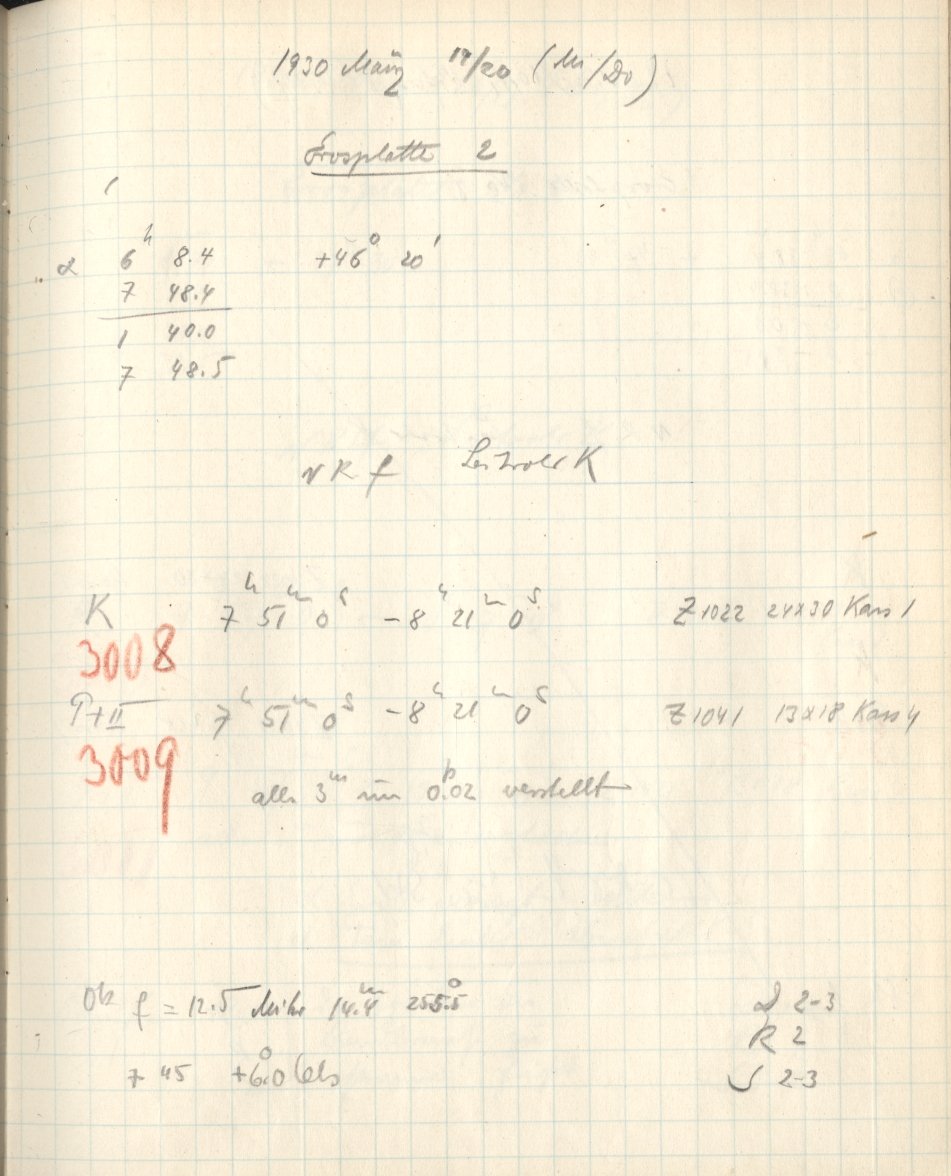 1930 März 19/20 (Mi/Do)
Erosplatte 2
α 6h 8.4 +46° 20'
7 48.4
1 40.0
7 48.5
K 7h 51m 0s – 8h 21m 0s Z 1022 24x30 Kass 1
3008
P+II 7h 51m 0s – 8h 21m 0s Z 1041 13x18 Kass 4
3009
alle 3m um 0.p02 verstellt
Ok f = 12.5 Mikr 14.4m 255.5° D 2-3
R 2
7 45 +6.°0 Cels S 2-3